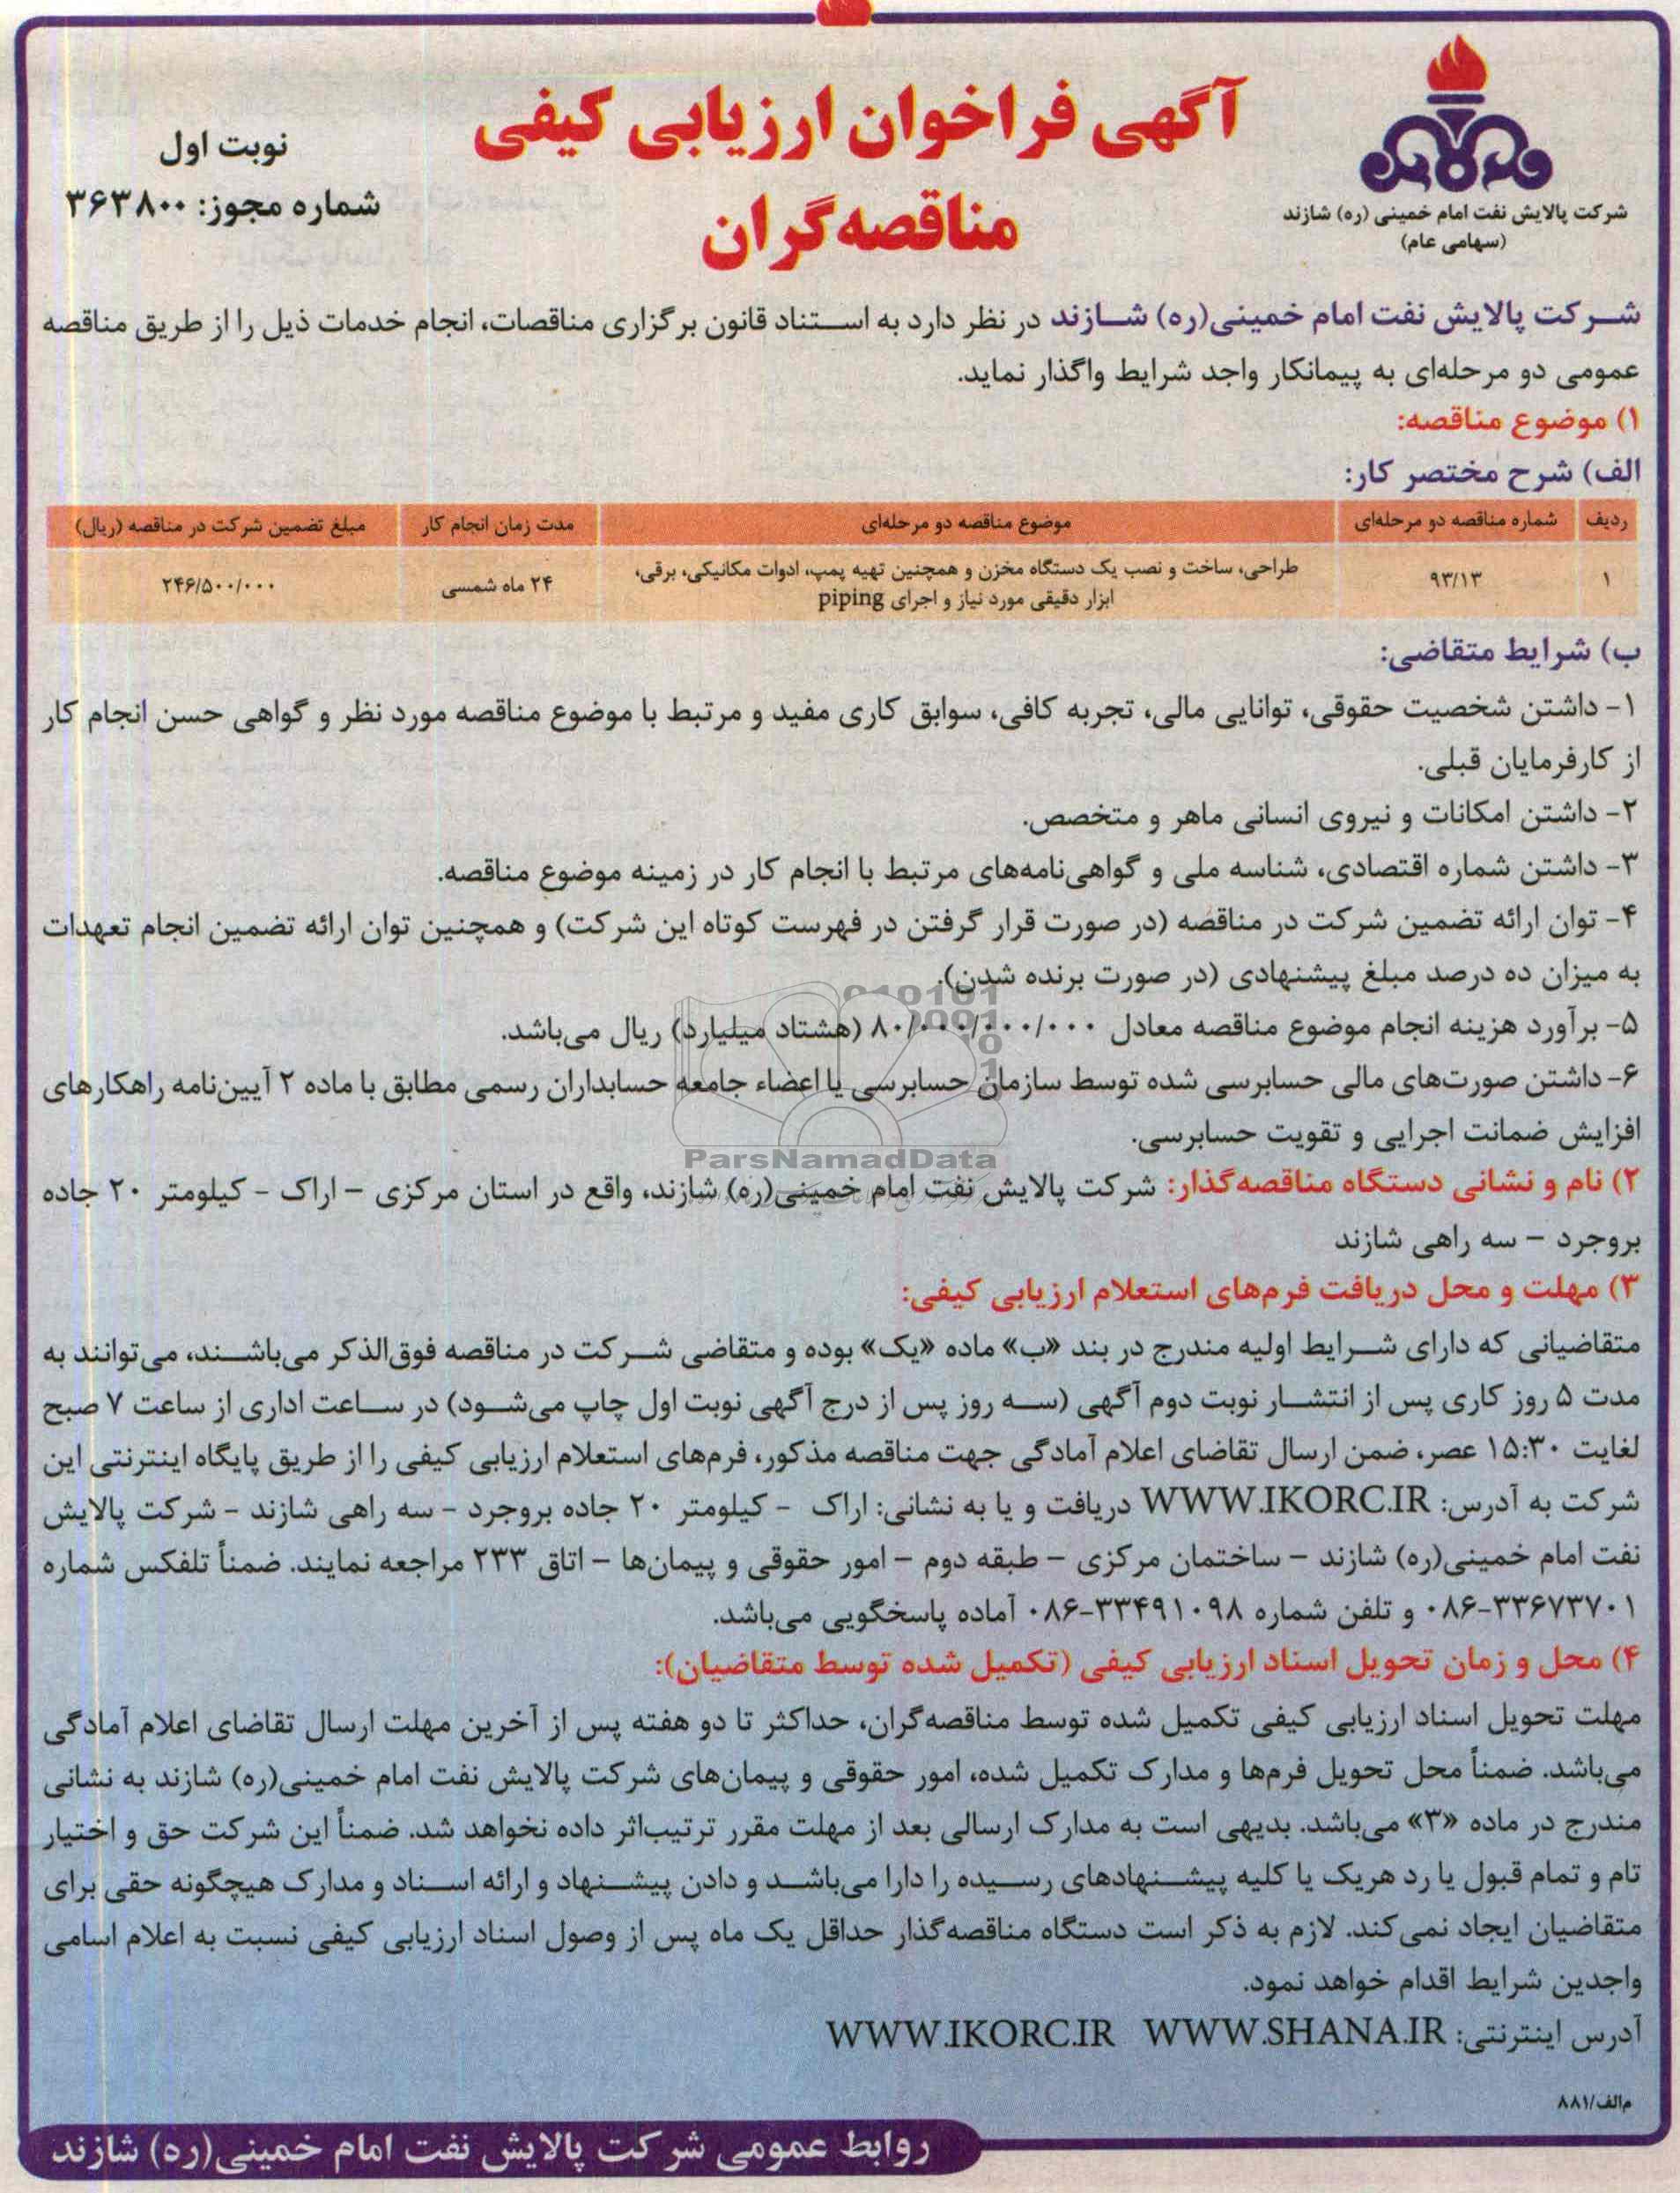 شرکت پالایش نفت امام خمینی (ره) شازند
(سهامی عام)
آگهی فراخوان ارزیابی کیفی
مناقصه‌گران
نوبت اول
شماره مجوز: ۳۶۳۸۰۰
شرکت پالایش نفت امام خمینی(ره) شازند در نظر دارد به استناد قانون برگزاری مناقصات، انجام خدمات ذیل را از طریق مناقصه
عمومی دو مرحله‌ای به پیمانکار واجد شرایط واگذار نماید.
۱) موضوع مناقصه:
الف) شرح مختصر کار:
ردیف شماره مناقصه دو مرحله‌ای موضوع مناقصه دو مرحله‌ای مدت زمان انجام کار مبلغ تضمین شرکت در مناقصه (ریال)
۱ ۹۳/۱۳ طراحی، ساخت و نصب یک دستگاه مخزن و همچنین تهیه پمپ، ادوات مکانیکی، برقی، ۲۴ ماه شمسی ۲۴۶/۵۰۰/۰۰۰
ابزار دقیقی مورد نیاز و اجرای piping
ب) شرایط متقاضی:
۱- داشتن شخصیت حقوقی، توانایی مالی، تجربه کافی، سوابق کاری مفید و مرتبط با موضوع مناقصه مورد نظر و گواهی حسن انجام کار
از کارفرمایان قبلی.
۲- داشتن امکانات و نیروی انسانی ماهر و متخصص.
۳- داشتن شماره اقتصادی، شناسه ملی و گواهی‌نامه‌های مرتبط با انجام کار در زمینه موضوع مناقصه.
۴- توان ارائه تضمین شرکت در مناقصه (در صورت قرار گرفتن در فهرست کوتاه این شرکت) و همچنین توان ارائه تضمین انجام تعهدات
به میزان ده درصد مبلغ پیشنهادی (در صورت برنده شدن).
۵- برآورد هزینه انجام موضوع مناقصه معادل ۸۰/۰۰۰/۰۰۰/۰۰۰ (هشتاد میلیارد) ریال می‌باشد.
۶- داشتن صورت‌های مالی حسابرسی شده توسط سازمان حسابرسی یا اعضاء جامعه حسابداران رسمی مطابق با ماده ۲ آیین‌نامه راهکارهای
افزایش ضمانت اجرایی و تقویت حسابرسی.
ParsNamadData
۲) نام و نشانی دستگاه مناقصه‌گذار: شرکت پالایش نفت امام خمینی(ره) شازند، واقع در استان مرکزی – اراک – کیلومتر ۲۰ جاده
بروجرد – سه راهی شازند
۳) مهلت و محل دریافت فرم‌های استعلام ارزیابی کیفی:
متقاضیانی که دارای شرایط اولیه مندرج در بند «ب» ماده «یک» بوده و متقاضی شرکت در مناقصه فوق‌الذکر می‌باشند، می‌توانند به
مدت ۵ روز کاری پس از انتشار نوبت دوم آگهی (سه روز پس از درج آگهی نوبت اول چاپ می‌شود) در ساعت اداری از ساعت ۷ صبح
لغایت ۱۵:۳۰ عصر، ضمن ارسال تقاضای اعلام آمادگی جهت مناقصه مذکور، فرم‌های استعلام ارزیابی کیفی را از طریق پایگاه اینترنتی این
شرکت به آدرس: WWW.IKORC.IR دریافت و یا به نشانی: اراک – کیلومتر ۲۰ جاده بروجرد – سه راهی شازند – شرکت پالایش
نفت امام خمینی(ره) شازند – ساختمان مرکزی – طبقه دوم – امور حقوقی و پیمان‌ها – اتاق ۲۳۳ مراجعه نمایند. ضمناً تلفکس شماره
۰۸۶-۳۳۶۷۳۷۰۱ و تلفن شماره ۰۸۶-۳۳۴۹۱۰۹۸ آماده پاسخگویی می‌باشد.
۴) محل و زمان تحویل اسناد ارزیابی کیفی (تکمیل شده توسط متقاضیان):
مهلت تحویل اسناد ارزیابی کیفی تکمیل شده توسط مناقصه‌گران، حداکثر تا دو هفته پس از آخرین مهلت ارسال تقاضای اعلام آمادگی
می‌باشد. ضمناً محل تحویل فرم‌ها و مدارک تکمیل شده، امور حقوقی و پیمان‌های شرکت پالایش نفت امام خمینی(ره) شازند به نشانی
مندرج در ماده «۳» می‌باشد. بدیهی است به مدارک ارسالی بعد از مهلت مقرر ترتیب‌اثر داده نخواهد شد. ضمناً این شرکت حق و اختیار
تام و تمام قبول یا رد هریک یا کلیه پیشنهادهای رسیده را دارا می‌باشد و دادن پیشنهاد و ارائه اسناد و مدارک هیچگونه حقی برای
متقاضیان ایجاد نمی‌کند. لازم به ذکر است دستگاه مناقصه‌گذار حداقل یک ماه پس از وصول اسناد ارزیابی کیفی نسبت به اعلام اسامی
واجدین شرایط اقدام خواهد نمود.
آدرس اینترنتی: WWW.SHANA.IR WWW.IKORC.IR
م‌الف/۸۸۱
روابط عمومی شرکت پالایش نفت امام خمینی(ره) شازند